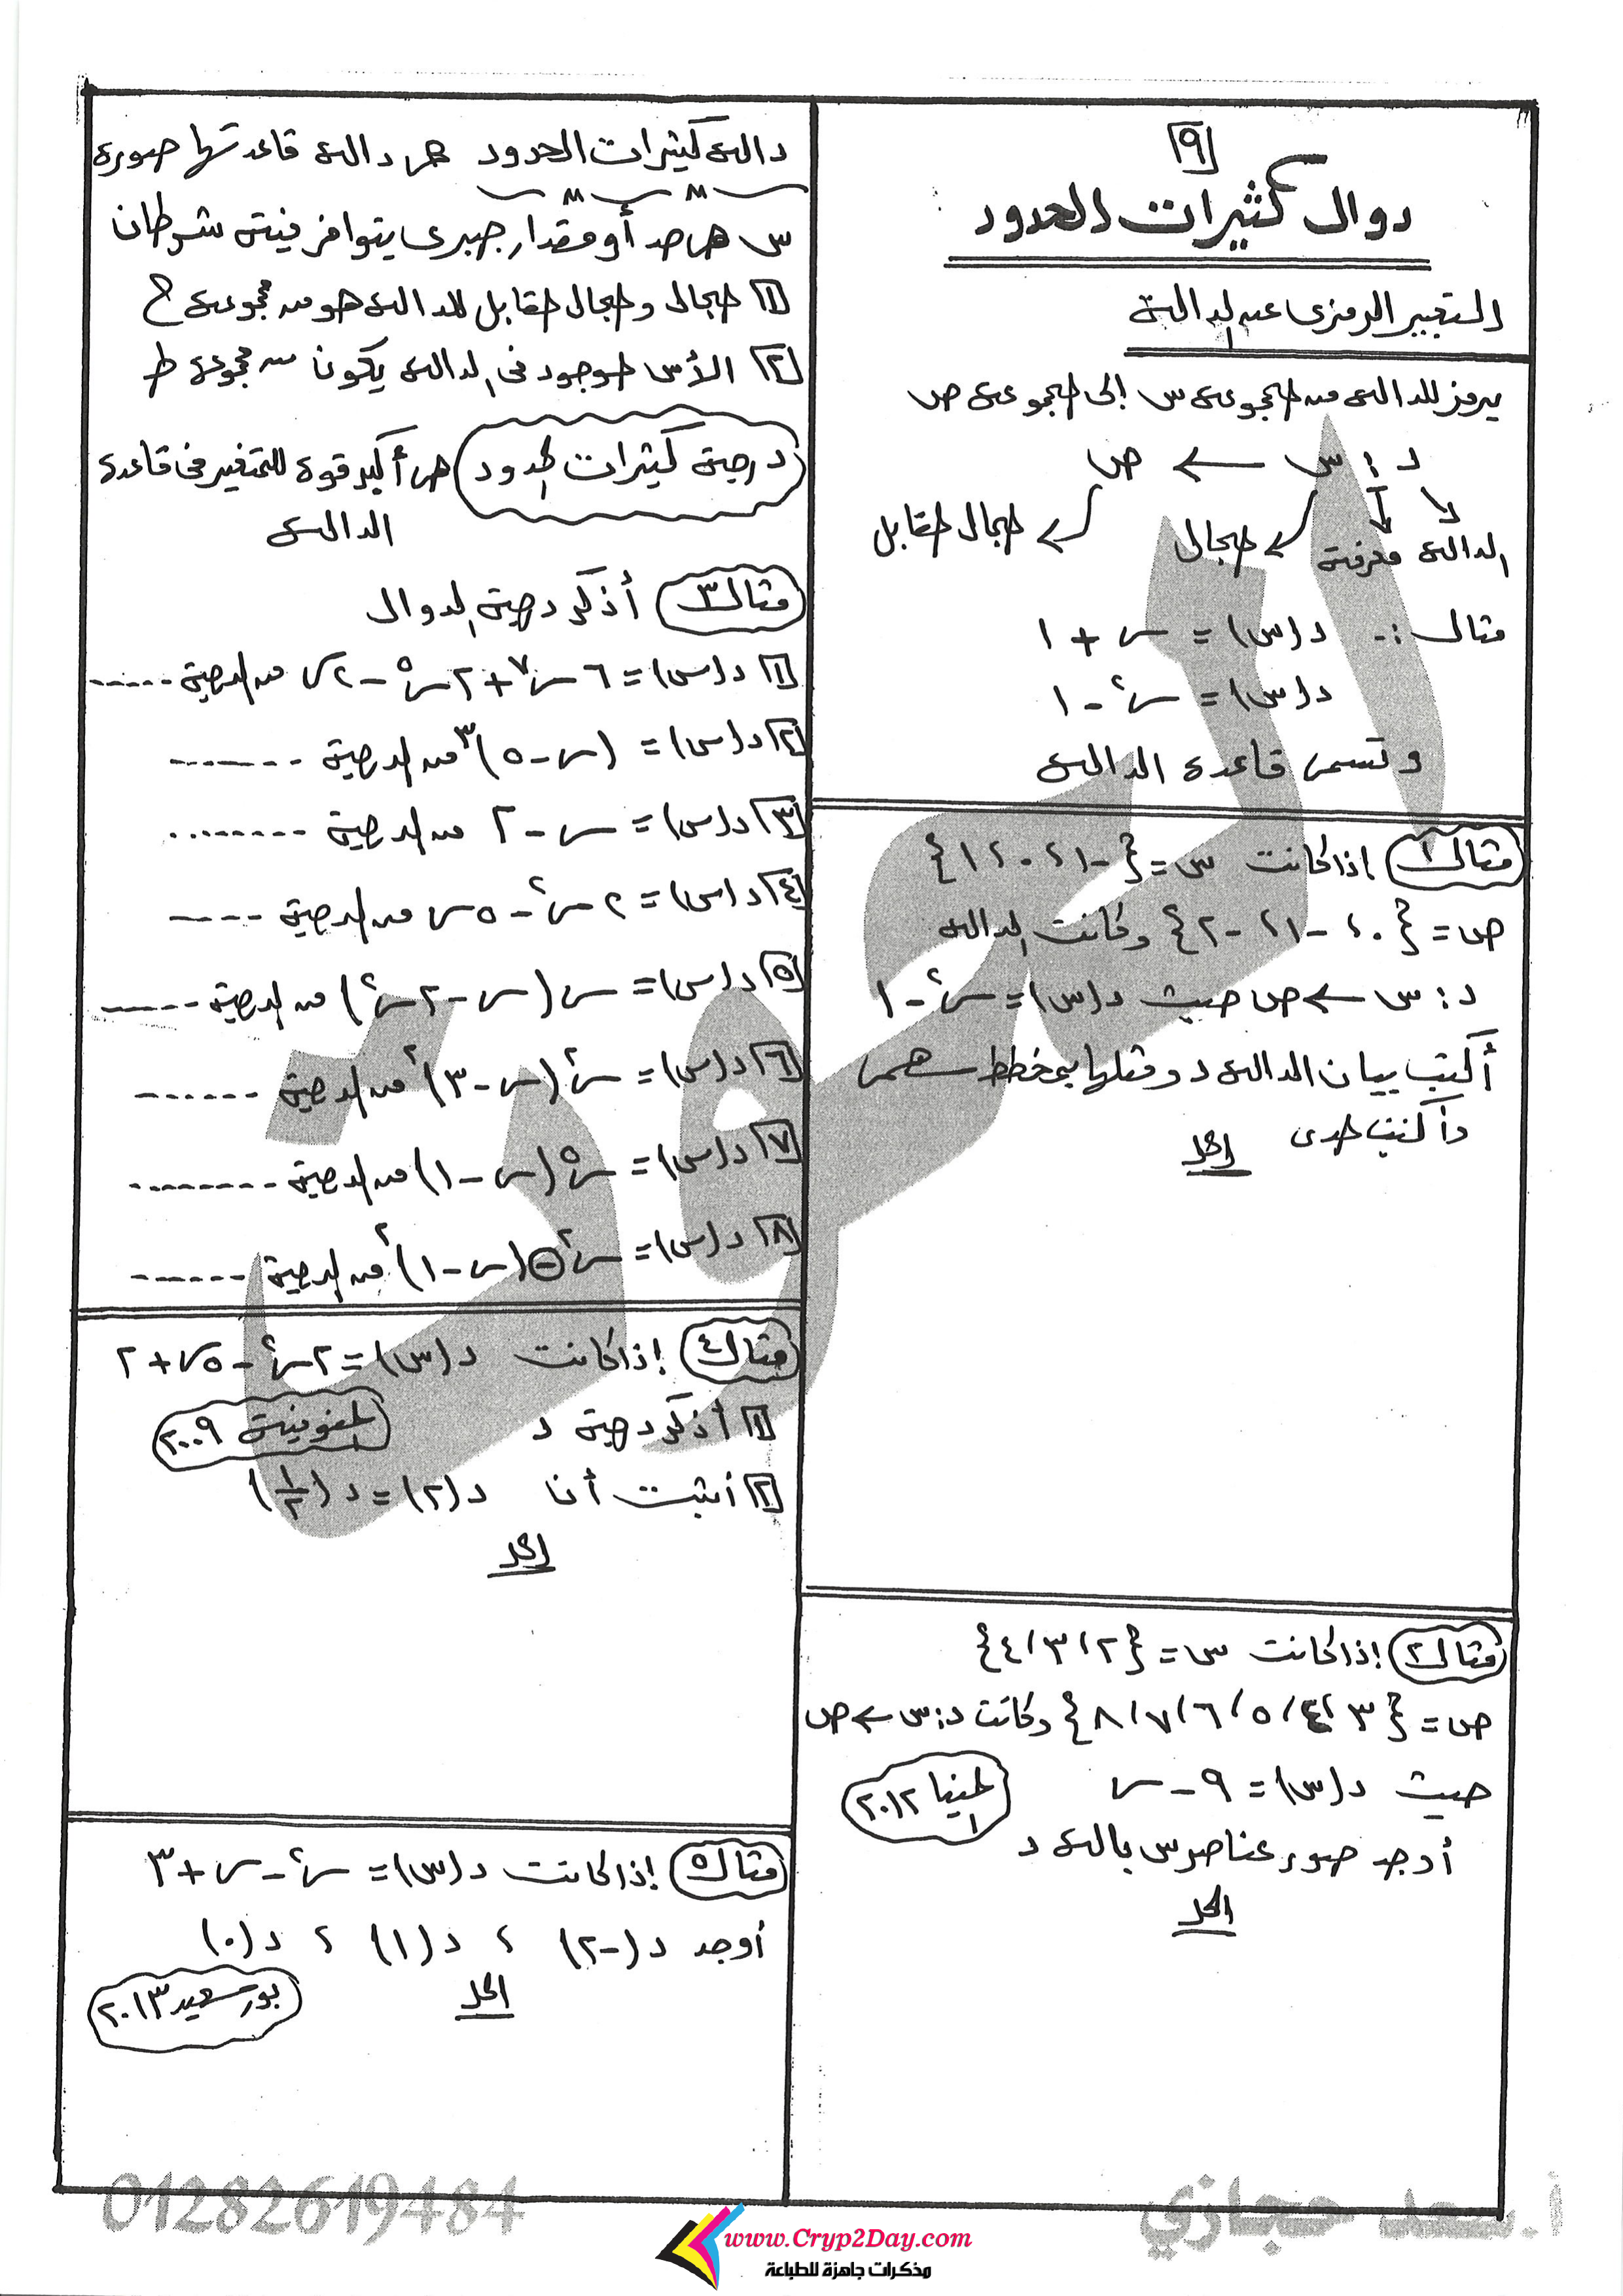 [٩]
دوال كثيرات الحدود
التعبير الرمزى عن الدالة
يرمز للدالة من المجموعة س إلى المجموعة ص
د : س ← ص
الدالة معرفة مجال مجال مقابل
مثال :- د(س) = س + ١
د(س) = س٢ - ١
وتسمى قاعدة الدالة
مثال ١ اذا كانت س = {-١، ٠، ١}
ص = {٠، -١، -٢} وكانت الدالة
د: س ← ص حيث د(س) = س٢ - ١
أكتب بيان الدالة د ومثلها بمخطط سهمى
وأكتب مدى
الحل
مثال ٢ إذا كانت س = {٢، ٣، ٤}
ص = {٣، ٤، ٥، ٦، ٧، ٨} وكانت د: س ← ص
حيث د(س) = ٩ - س
المنيا ٢٠١٢
أوجد صور عناصر س بالدالة د
الحل
دالة كثيرات الحدود هى دالة قاعدتها صورة
س هى حد أو مقدار جبرى يتوافر فيه شرطان
[١] مجال ومجال مقابل للدالة هو من مجموعة ح
[٢] الأس موجود فى الدالة يكون من مجموعة ط
درجة كثيرات الحدود هى أكبر قوة للمتغير فى قاعدة
الدالة
مثال ٣ أذكر درجة الدوال
[١] د(س) = ٦س٧ + ٢س٥ - ٢س من الدرجة ......
[٢] د(س) = (س - ٥)٣ من الدرجة .......
[٣] د(س) = س - ٢ من الدرجة ........
[٤] د(س) = ٢س٢ - ٥س من الدرجة ----
[٥] د(س) = س(س - ٢س٢) من الدرجة ------
[٦] د(س) = س٢(س - ٣)٢ من الدرجة ......
[٧] د(س) = س٥(س - ١) من الدرجة ........
[٨] د(س) = س٢ - (س - ١)٢ من الدرجة ------
مثال ٤ إذا كانت د(س) = ٢س٢ - ٥س + ٢
[١] أذكر درجة د
المنوفية ٢٠٠٩
[٢] أثبت أن د(٢) = د(١/٢)
الحل
مثال ٥ إذا كانت د(س) = س٢ - س + ٣
أوجد د(-٢) ، د(١) ، د(٠)
الحل
بورسعيد ٢٠١٣
01282619484
أ.سعد حجازي
www.Cryp2Day.com
مذكرات جاهزة للطباعة